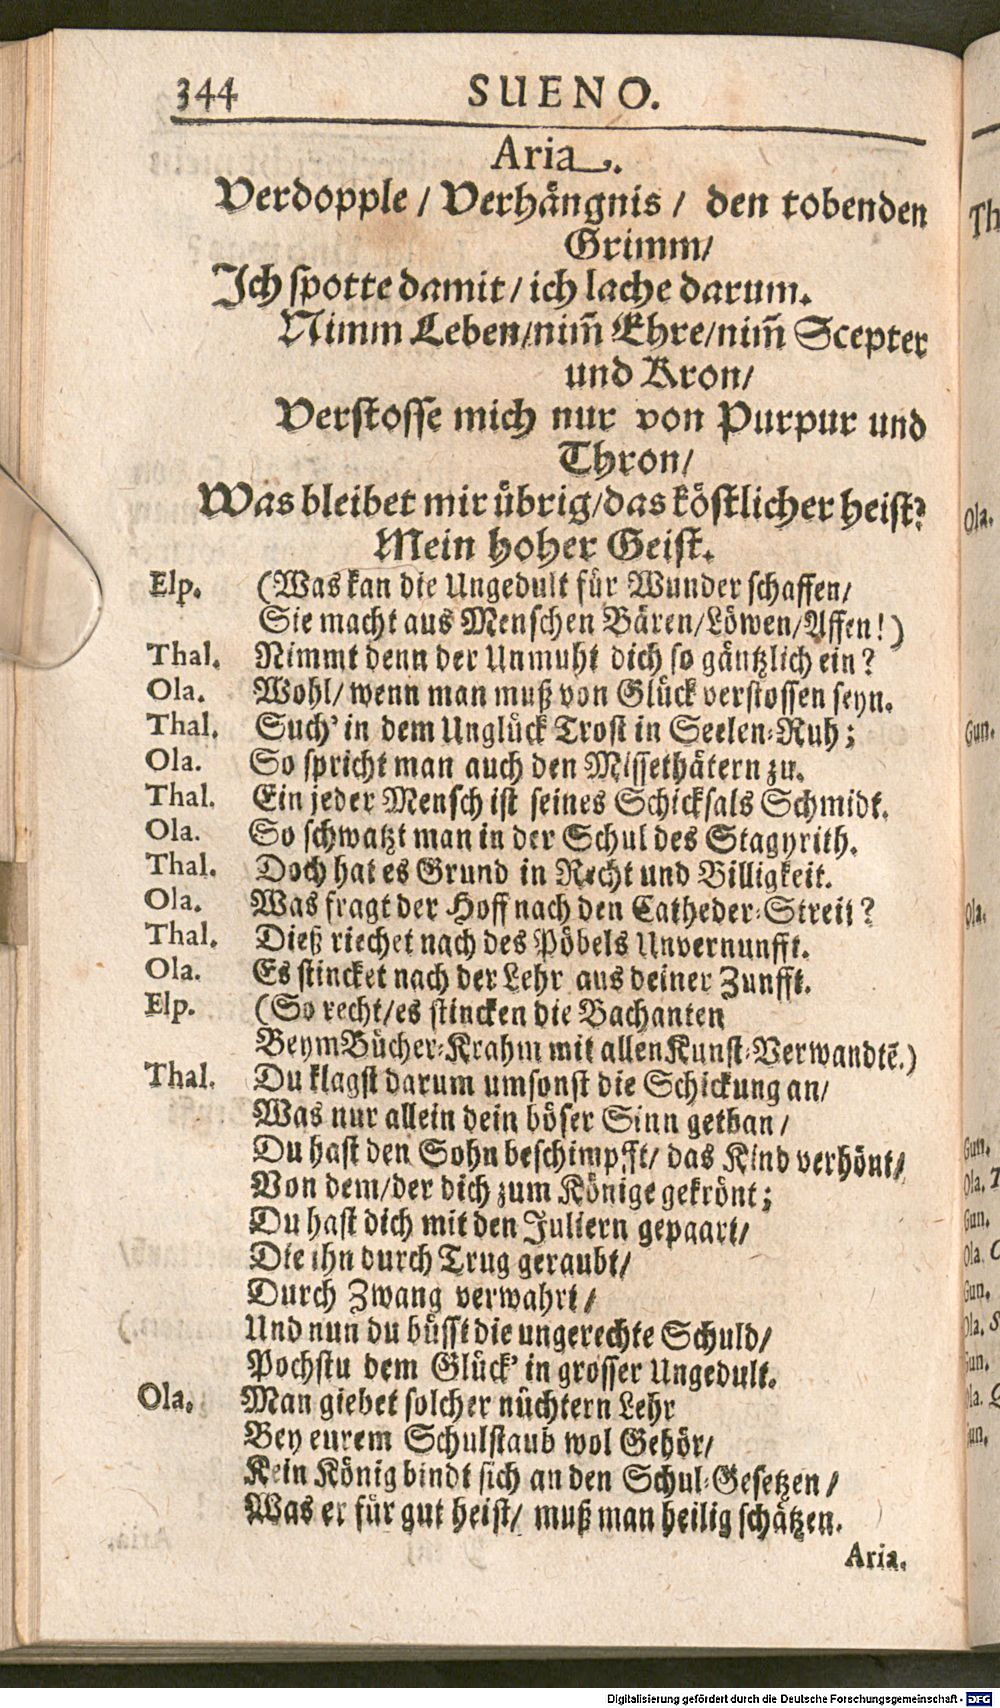 344 SUENO.
Aria.
Verdopple / Verhängnis / den tobenden
Grimm/
Ich spotte damit / ich lache darum.
Nimm Leben/nim̃ Ehre/nim̃ Scepter
und Kron/
Verstosse mich nur von Purpur und
Thron/
Was bleibet mir übrig/das köstlicher heist?
Mein hoher Geist.
Elp. (Was kan die Ungedult für Wunder schaffen/
Sie macht aus Menschen Bären/Löwen/Affen!)
Thal. Nimmt denn der Unmuht dich so gäntzlich ein?
Ola. Wohl/ wenn man muß von Glück verstossen seyn.
Thal. Such' in dem Unglück Trost in Seelen-Ruh;
Ola. So spricht man auch den Missethätern zu.
Thal. Ein jeder Mensch ist seines Schicksals Schmidt.
Ola. So schwatzt man in der Schul des Stagyrith.
Thal. Doch hat es Grund in Recht und Billigkeit.
Ola. Was fragt der Hoff nach den Catheder-Streit?
Thal. Dieß riechet nach des Pöbels Unvernunfft.
Ola. Es stincket nach der Lehr aus deiner Zunfft.
Elp. (So recht/es stincken die Bachanten
Beym Bücher-Krahm mit allen Kunst-Verwandtẽ.)
Thal. Du klagst darum umsonst die Schickung an/
Was nur allein dein böser Sinn gethan /
Du hast den Sohn beschimpfft/ das Kind verhönt/
Von dem/der dich zum Könige gekrönt;
Du hast dich mit den Juliern gepaart/
Die ihn durch Trug geraubt/
Durch Zwang verwahrt /
Und nun du büsst die ungerechte Schuld/
Pochstu dem Glück' in grosser Ungedult.
Ola. Man giebet solcher nüchtern Lehr
Bey eurem Schulstaub wol Gehör/
Kein König bindt sich an den Schul-Gesetzen /
Was er für gut heist/ muß man heilig schätzen.
Aria.
Th
Ola.
Gun.
Ola.
Gun.
Ola.
Gun.
Ola.
Gun.
Ola.
Gun.
Ola.
Gun.
Digitalisierung gefördert durch die Deutsche Forschungsgemeinschaft - DFG